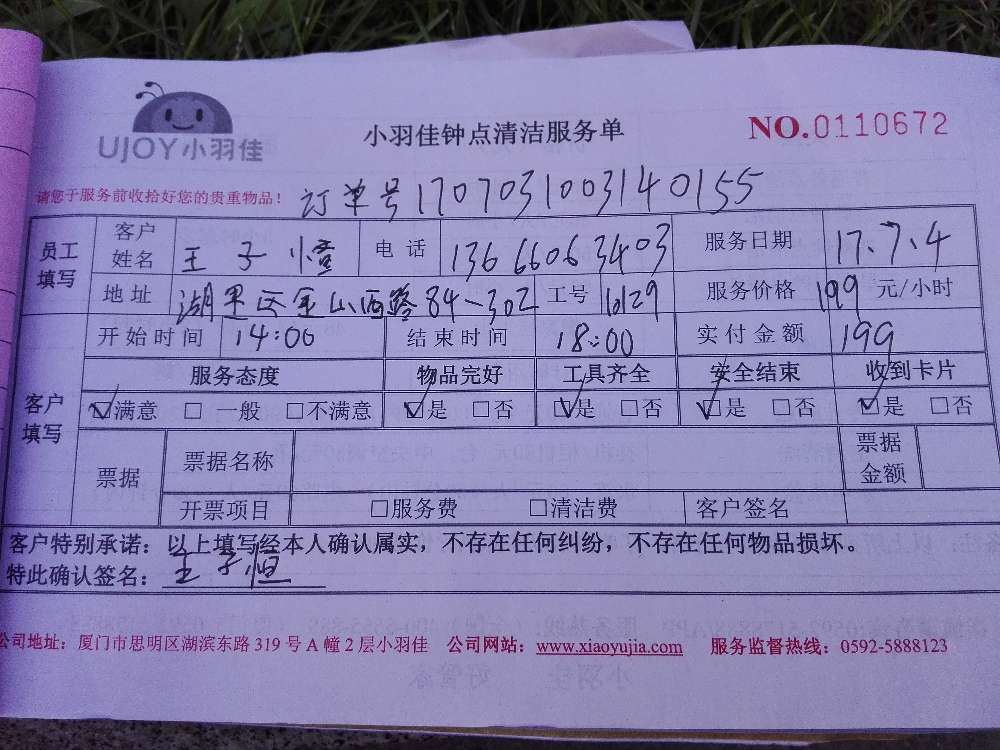 UJOY小羽佳
小羽佳钟点清洁服务单
NO.0110672
请您于服务前收拾好您的贵重物品！
订单号1707031003140155
员工填写 客户姓名 王子 电话 13666063403 服务日期 17.7.4
地址 湖里区金山西路84-302 工号 16129 服务价格 199 元/小时
客户填写 开始时间 14:00 结束时间 18:00 实付金额 199
服务态度 物品完好 工具齐全 安全结束 收到卡片
☑满意 □一般 □不满意 ☑是 □否 ☑是 □否 ☑是 □否 ☑是 □否
票据 票据名称 票据金额
开票项目 □服务费 □清洁费 客户签名
客户特别承诺：以上填写经本人确认属实，不存在任何纠纷，不存在任何物品损坏。
特此确认签名：王子恒
公司地址：厦门市思明区湖滨东路319号A幢2层小羽佳 公司网站：www.xiaoyujia.com 服务监督热线：0592-5888123